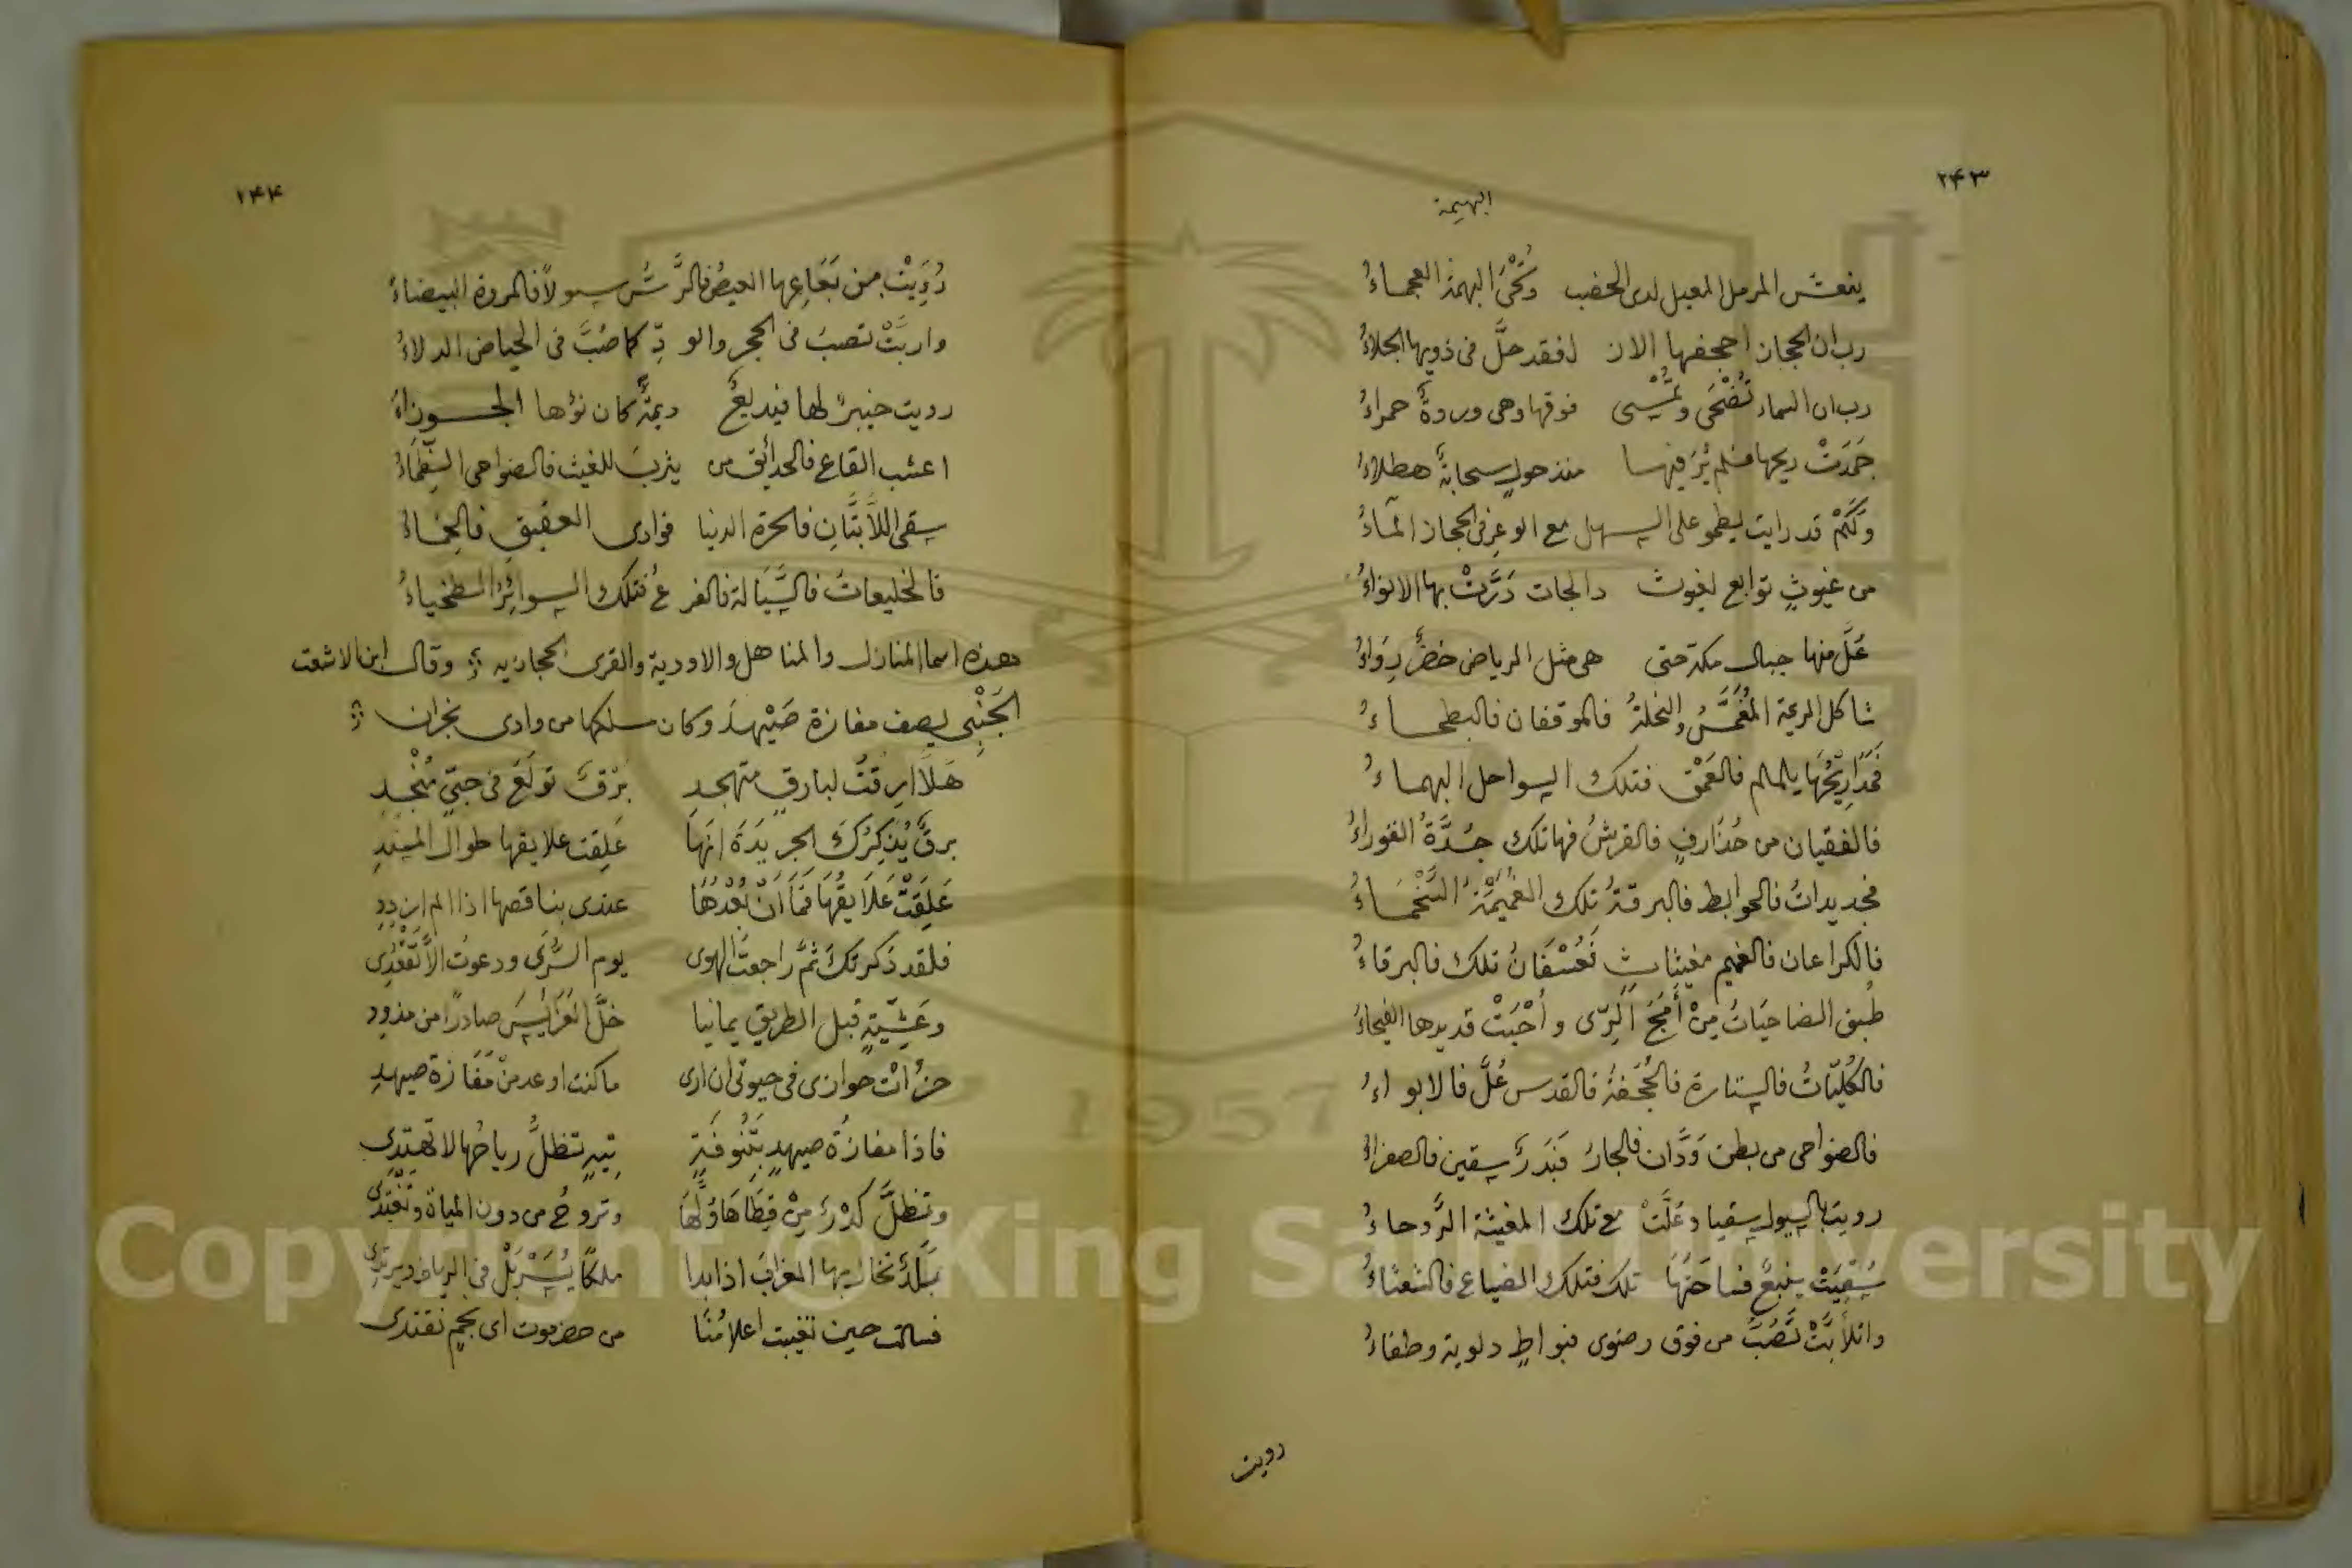 ٢٤٣
البهيمة
ينعش المرمل المعيل لدى الخصب وتُحْيَى البهمة العجماءُ
رب ان الحجاز اجحفها الاز لفقد حلَّ فى ذويها الجلاءُ
رب ان السماء تُضْحَى وتُمْسِى فوقها وهى وردةٌ حمراءُ
جَمَدَتْ ريحها فلم يُرَ فيها منذ حولٍ سحابةٌ هطلاءُ
وَلَكَمْ قد رايت يطمو على السهل مع الوعرِ فى الحجاز المآءُ
من غيوثٍ توابع لغيوث دالجات دَرَّتْ بها الانواءُ
عُلَّ منها جبال مكة حتى هى مثل الرياض خضرٌ رِوَاءُ
شاكل الرعة المُغَمَّسُ والنخلةُ فالموقفان فالبطحاءُ
يلملم فالعَمْق فتلك السواحل البهماءُ
فالفقيان من حُذَارفٍ فالقرشُ فهاتلك جُدَّةُ الغوراءُ
فجديداتُ فالحوابط فالبرقةُ تلك العُمَيْمَةُ السَّحْمَاءُ
فالكراعان فالغميم مغيثاثٍ فَعُسْفَانُ تلك فالبرقاءُ
طُبق الضاحيَاتُ مِنْ أَمَجَ الرِّى و أُحْيَتْ قديدها الفيحاءُ
فالكُلَيّاتُ فالستارة فالجُحْفَةُ فالقدس عُلَّ فالابواءُ
فالضواحى من بطن وَدَّان فالجارُ فَبَدرٌ سقين فالصفراءُ
رويت بالسيول سقيا وعُلَّتْ مع تلك المغيثة الرَّوحاءُ
سُقِيَتْ ينبعٌ فساحَتُهَا تلك فتلك الضياع فالشعثاءُ
واتلأَبَّتْ تَصُبّ من فوق رضوى فبواطٍ دلوية وطفاءُ
رويت
٢٤٤
رُوِيَتْ من بَعَاعِها العيصُ فالرَّسُّ سيولاً فالمروة البيضاءُ
واربَّتْ تصبّ فى الحجر والو دِّ كما صُبَّ فى الحياض الدلاءُ
رويت خيبرٌ لها فيديعٌ ديمةٌ كان نؤها الجوزاءُ
اعشب القاع فالحدائق من يثربَ للغيث فالضواحى الظِمَاءُ
سقى اللاَّبتَانِ فالحرة الدنيا فوادى العقيق فالجماءُ
فالخليعاتُ فالسَّيَالة فالفرعُ فتلك السوائِرُ الطخياءُ
هذه اسما المنازل والمناهل والاودية والقرى الحجازيه ۞ وقال ابن الاشعت
الجَنْبِى يصف مفازة صَيْهدَ وكان سلكها من وادى نجران ۞
هَلاَّ ارقتَ لبارقٍ متهجدِ بَرْقٌ تولَّعَ فى حبّىٍ مُنْجدِ
برقٌ يُذَكِرُكَ الجريدَةَ انهَا عَلِقت علايقها طوال المسندِ
عَلِقَتْ عَلاَيقُهَا فَمَا اَنْ بُعْدُهَا عندى بناقصها اذا لم ازددِ
فلقد ذكرتكَ ثمَّ راجعت الهوى يوم السُّرَى ودعوتُ الاَّ تَقْعُدِى
وعَشِيّةٍ قبل الطريق يمانيا خلَّ العَرَايسَ صادرًا من مذود
حزأت حوازى فى حيوتى ان ارى ماكنت اوعد منْ مَفَازة صيهدِ
فاذا مفازةُ صيهدٍ بِتَنُوفَةٍ تِيهٍ تظلُّ رياحُها لا تهتدِى
وتظلُّ كُدْرٌ مِنْ قِطَاهَا وُلَّهَا وتروحُ من دون المياة وتَغْتَدِى
بَلَدٌ تخال بها الغرابَ اذا بدا ملكًا يُسَرْبَلُ فى الرياط ويرتدِى
فسالت حين تغيبت اعلامُنَا من حضرموت اى نجمٍ نقتدى